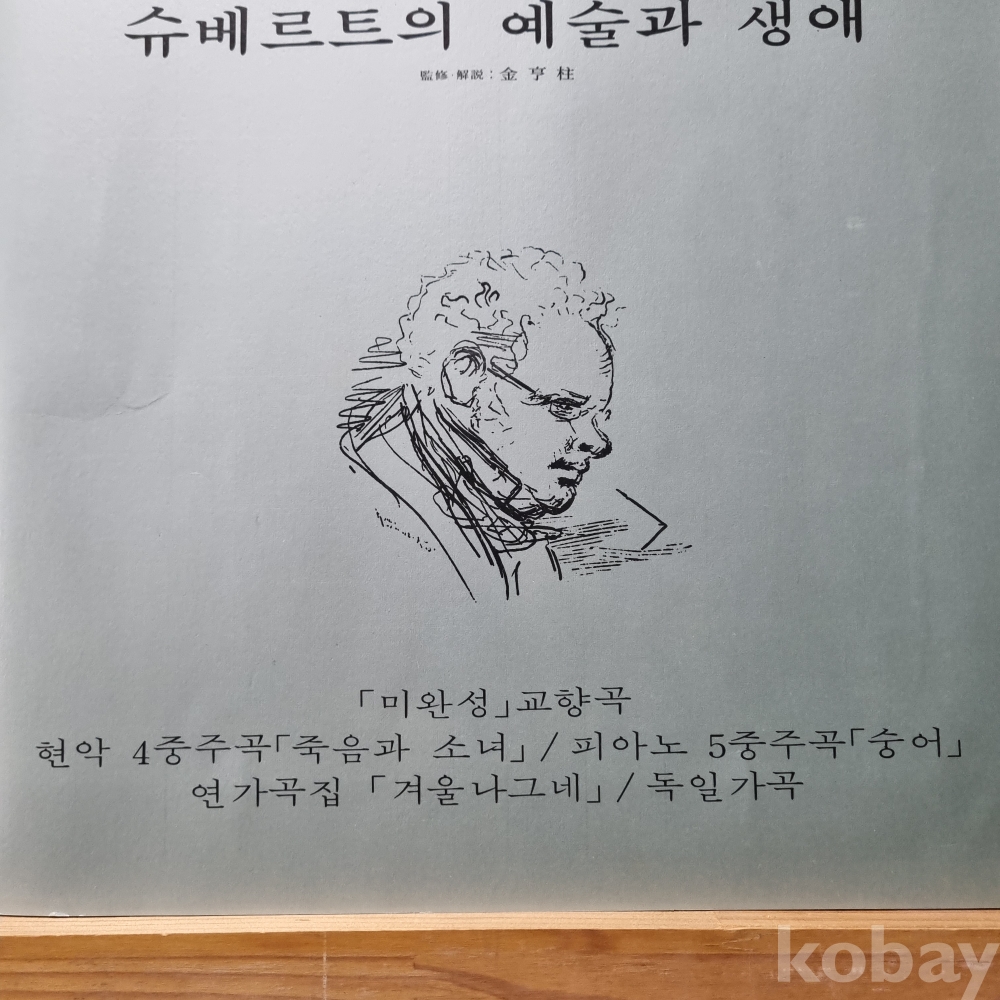 슈베르트의 예술과 생애
監修·解説: 金亨柱
「미완성」교향곡
현악 4중주곡「죽음과 소녀」/ 피아노 5중주곡「숭어」
연가곡집 「겨울나그네」/ 독일가곡
kobay